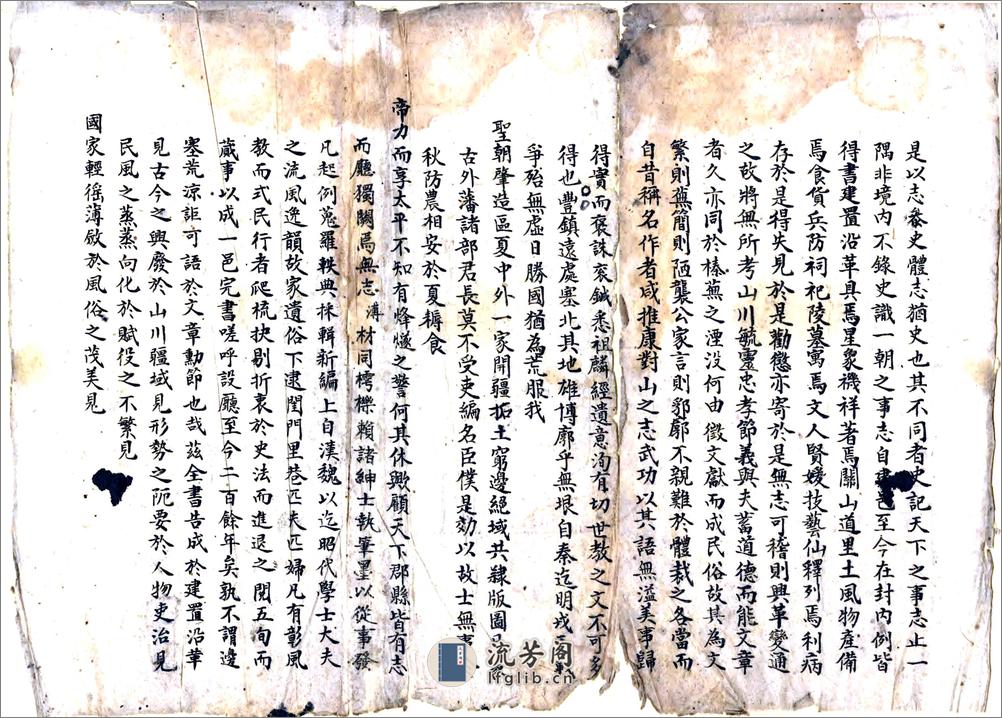 是以志參史體志猶史也其不同者史記天下之事志止一
隅非境內不錄史識一朝之事志自建邑至今在封內例皆
得書建置沿革具焉星象禨祥著焉關山道里土風物產備
焉食貨兵防祠祀陵墓寓焉文人賢媛技藝仙釋列焉利病
存於是得失見於是勸懲亦寄於是無志可稽則興革變通
之故將無所考山川毓靈忠孝節義與夫蓄道德而能文章
者久亦同於榛蕪之湮沒何由徵文獻而成民俗故其為文
繁則蕪簡則陋襲公家言則郛廓不親難於體裁之各當而
自昔稱名作者咸推康對山之志武功以其語無溢美事歸
得實而褒誅袞鉞悉祖麟經遺意洵有切世教之文不可多
得也豐鎮遠處塞北其地雄博廓乎無垠自秦迄明戎
爭殆無虛日勝國猶為荒服我
聖朝肇造區夏中外一家開疆拓土窮邊絕域共隸版圖
古外藩諸部君長莫不受吏編名臣僕是効以故士無事
秋防農相安於夏耨食
帝力而享太平不知有烽燧之警何其休歟顧天下郡縣皆有志
而廳獨闕焉無志溥材同樗櫟賴諸紳士執筆墨以從事發
凡起例蒐羅軼典採輯新編上自漢魏以迄昭代學士大夫
之流風逸韻故家遺俗下逮閨門里巷匹夫匹婦凡有彰風
教而式民行者爬梳抉剔折衷於史法而進退之閱五旬而
蕆事以成一邑完書嗟呼設廳至今二百餘年矣孰不謂邊
塞荒涼詎可語於文章勳節也哉茲全書告成於建置沿革
見古今之興廢於山川疆域見形勢之阨要於人物吏治見
民風之蒸蒸向化於賦役之不繁見
國家輕徭薄斂於風俗之茂美見
流芳阁
lfglib.cn